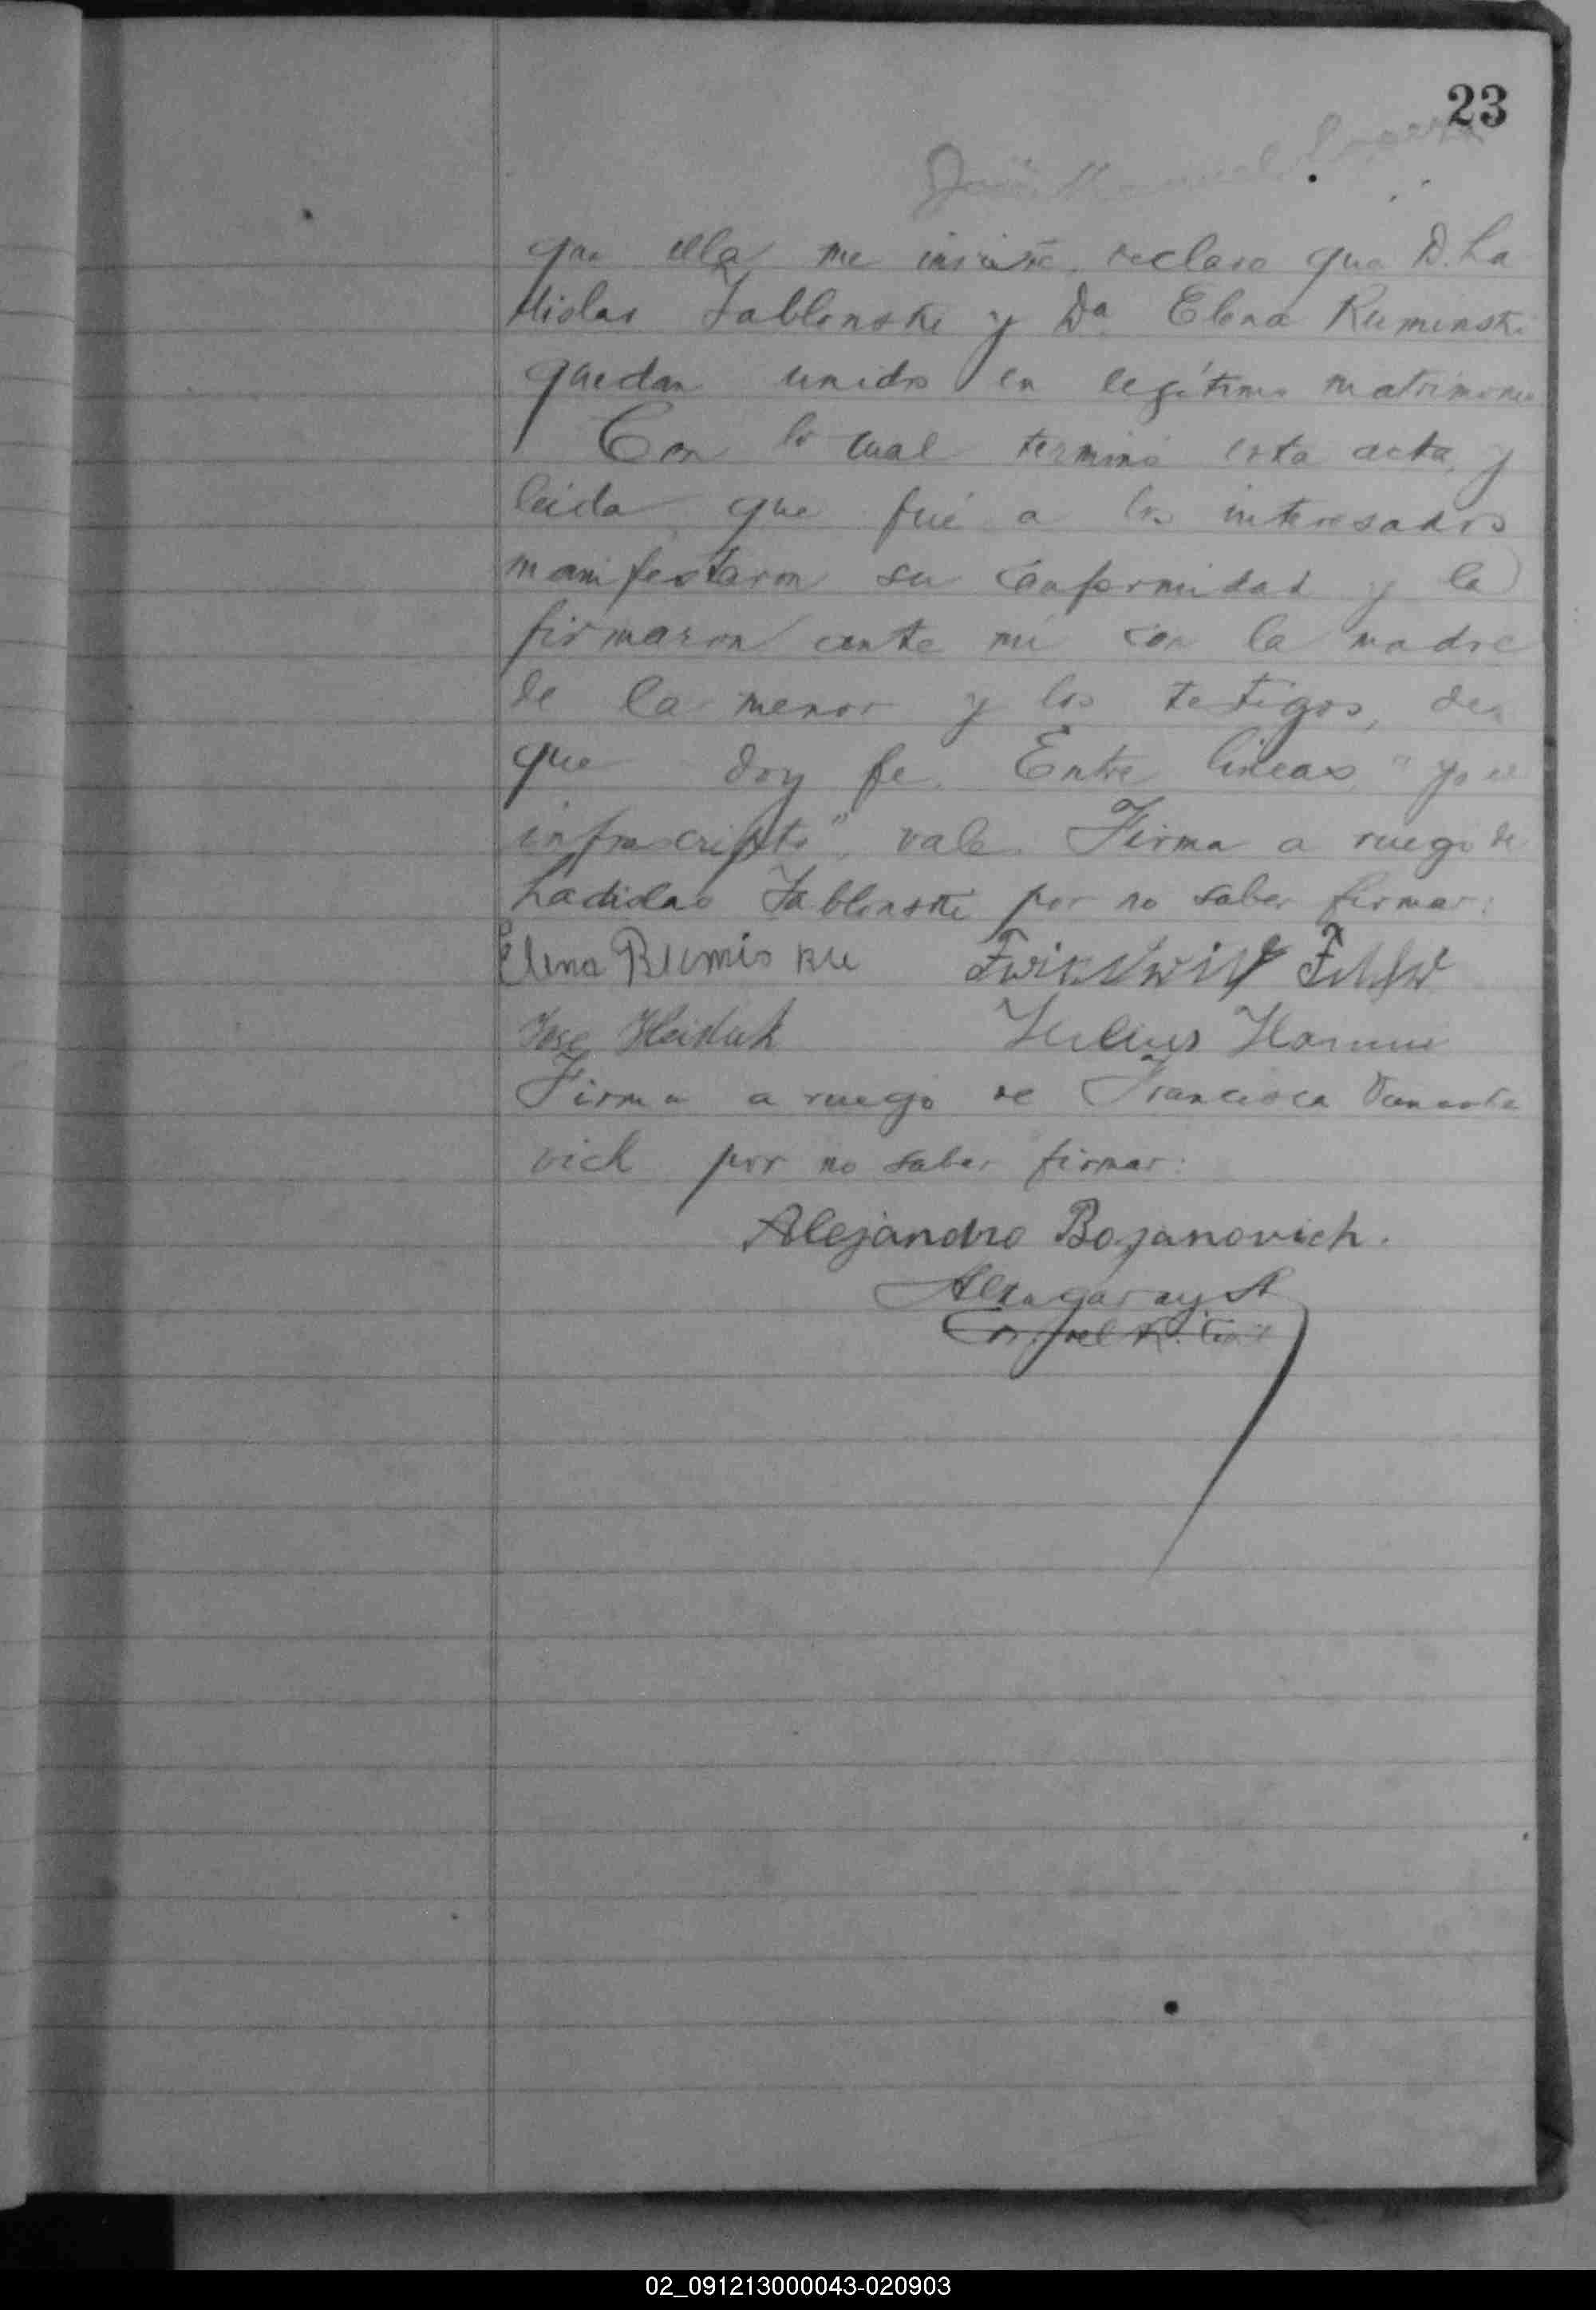 23
que ella me inviste, declaro que D. La
dislao Jablonski y Da Elena Ruminski
quedan unidos en legítimo matrimonio
Con lo cual terminó esta acta, y
leida que fué a los interesados
manifestaron su conformidad y la
firmaron ante mí con la madre
de la menor y los testigos, de
que doy fe. Entre lineas "yo el
infrascripto", vale. Firma a ruego de
Ladislao Jablonski por no saber firmar:
Elena
José Julius
Firma a ruego de Francisca
vich por no saber firmar:
Alejandro Bojanovich.
02_091213000043-020903